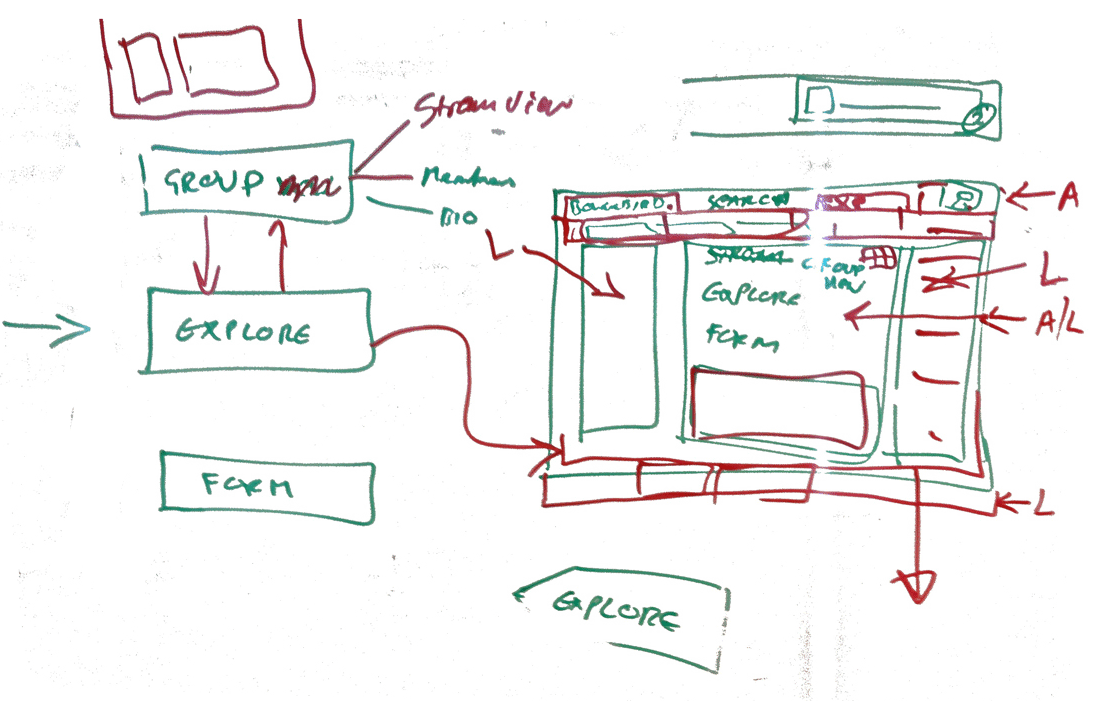 Stream View
GROUP
Members
BIO
EXPLORE
FORM
A
SEARCH
L
GROUP
NAV
EXPLORE
FORM
L
A/L
L
EXPLORE